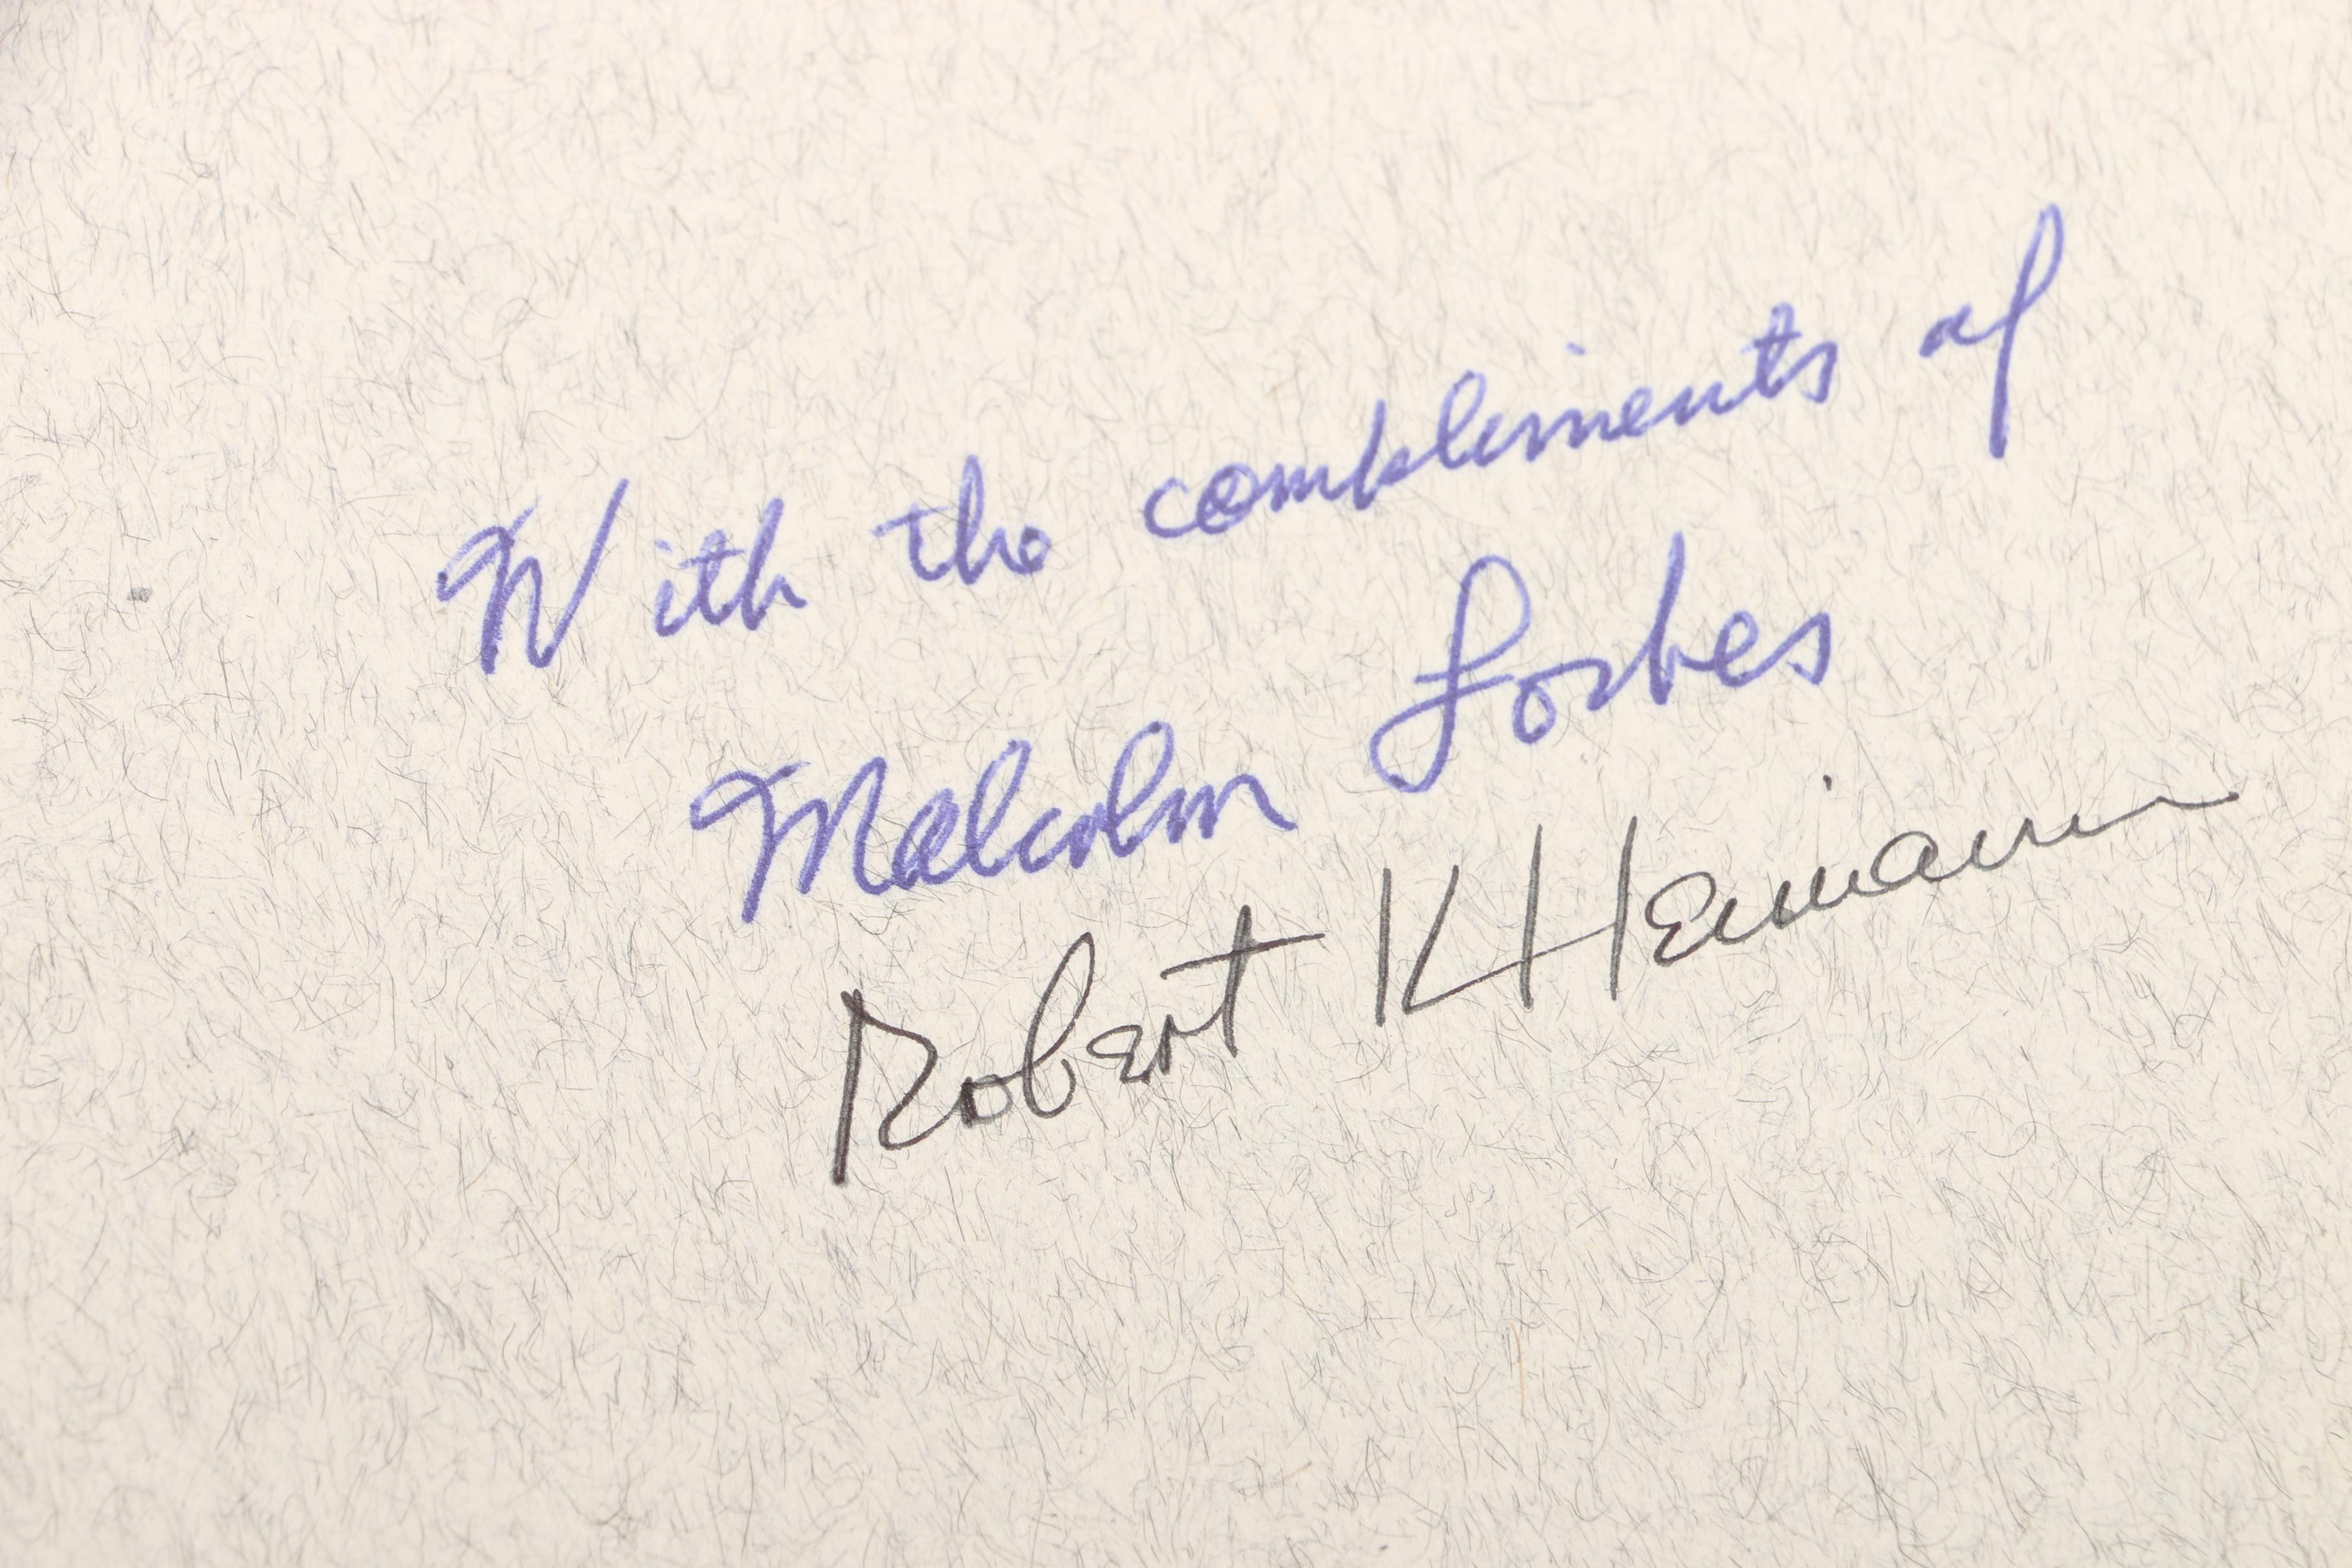 With the compliments of
Malcolm Forbes
Robert K Heimann